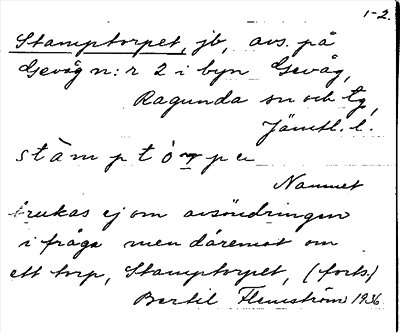 1-2.
Stamptorpet, jb, avs. på
Gevåg n:r 2 i byn Gevåg,
Ragunda sn och tg,
Jämtl. l.
stàmptórpe
Namnet
brukas ej om avsöndringen
i fråga men däremot om
ett torp, Stamptorpet, (forts.)
Bertil Flemström 1936